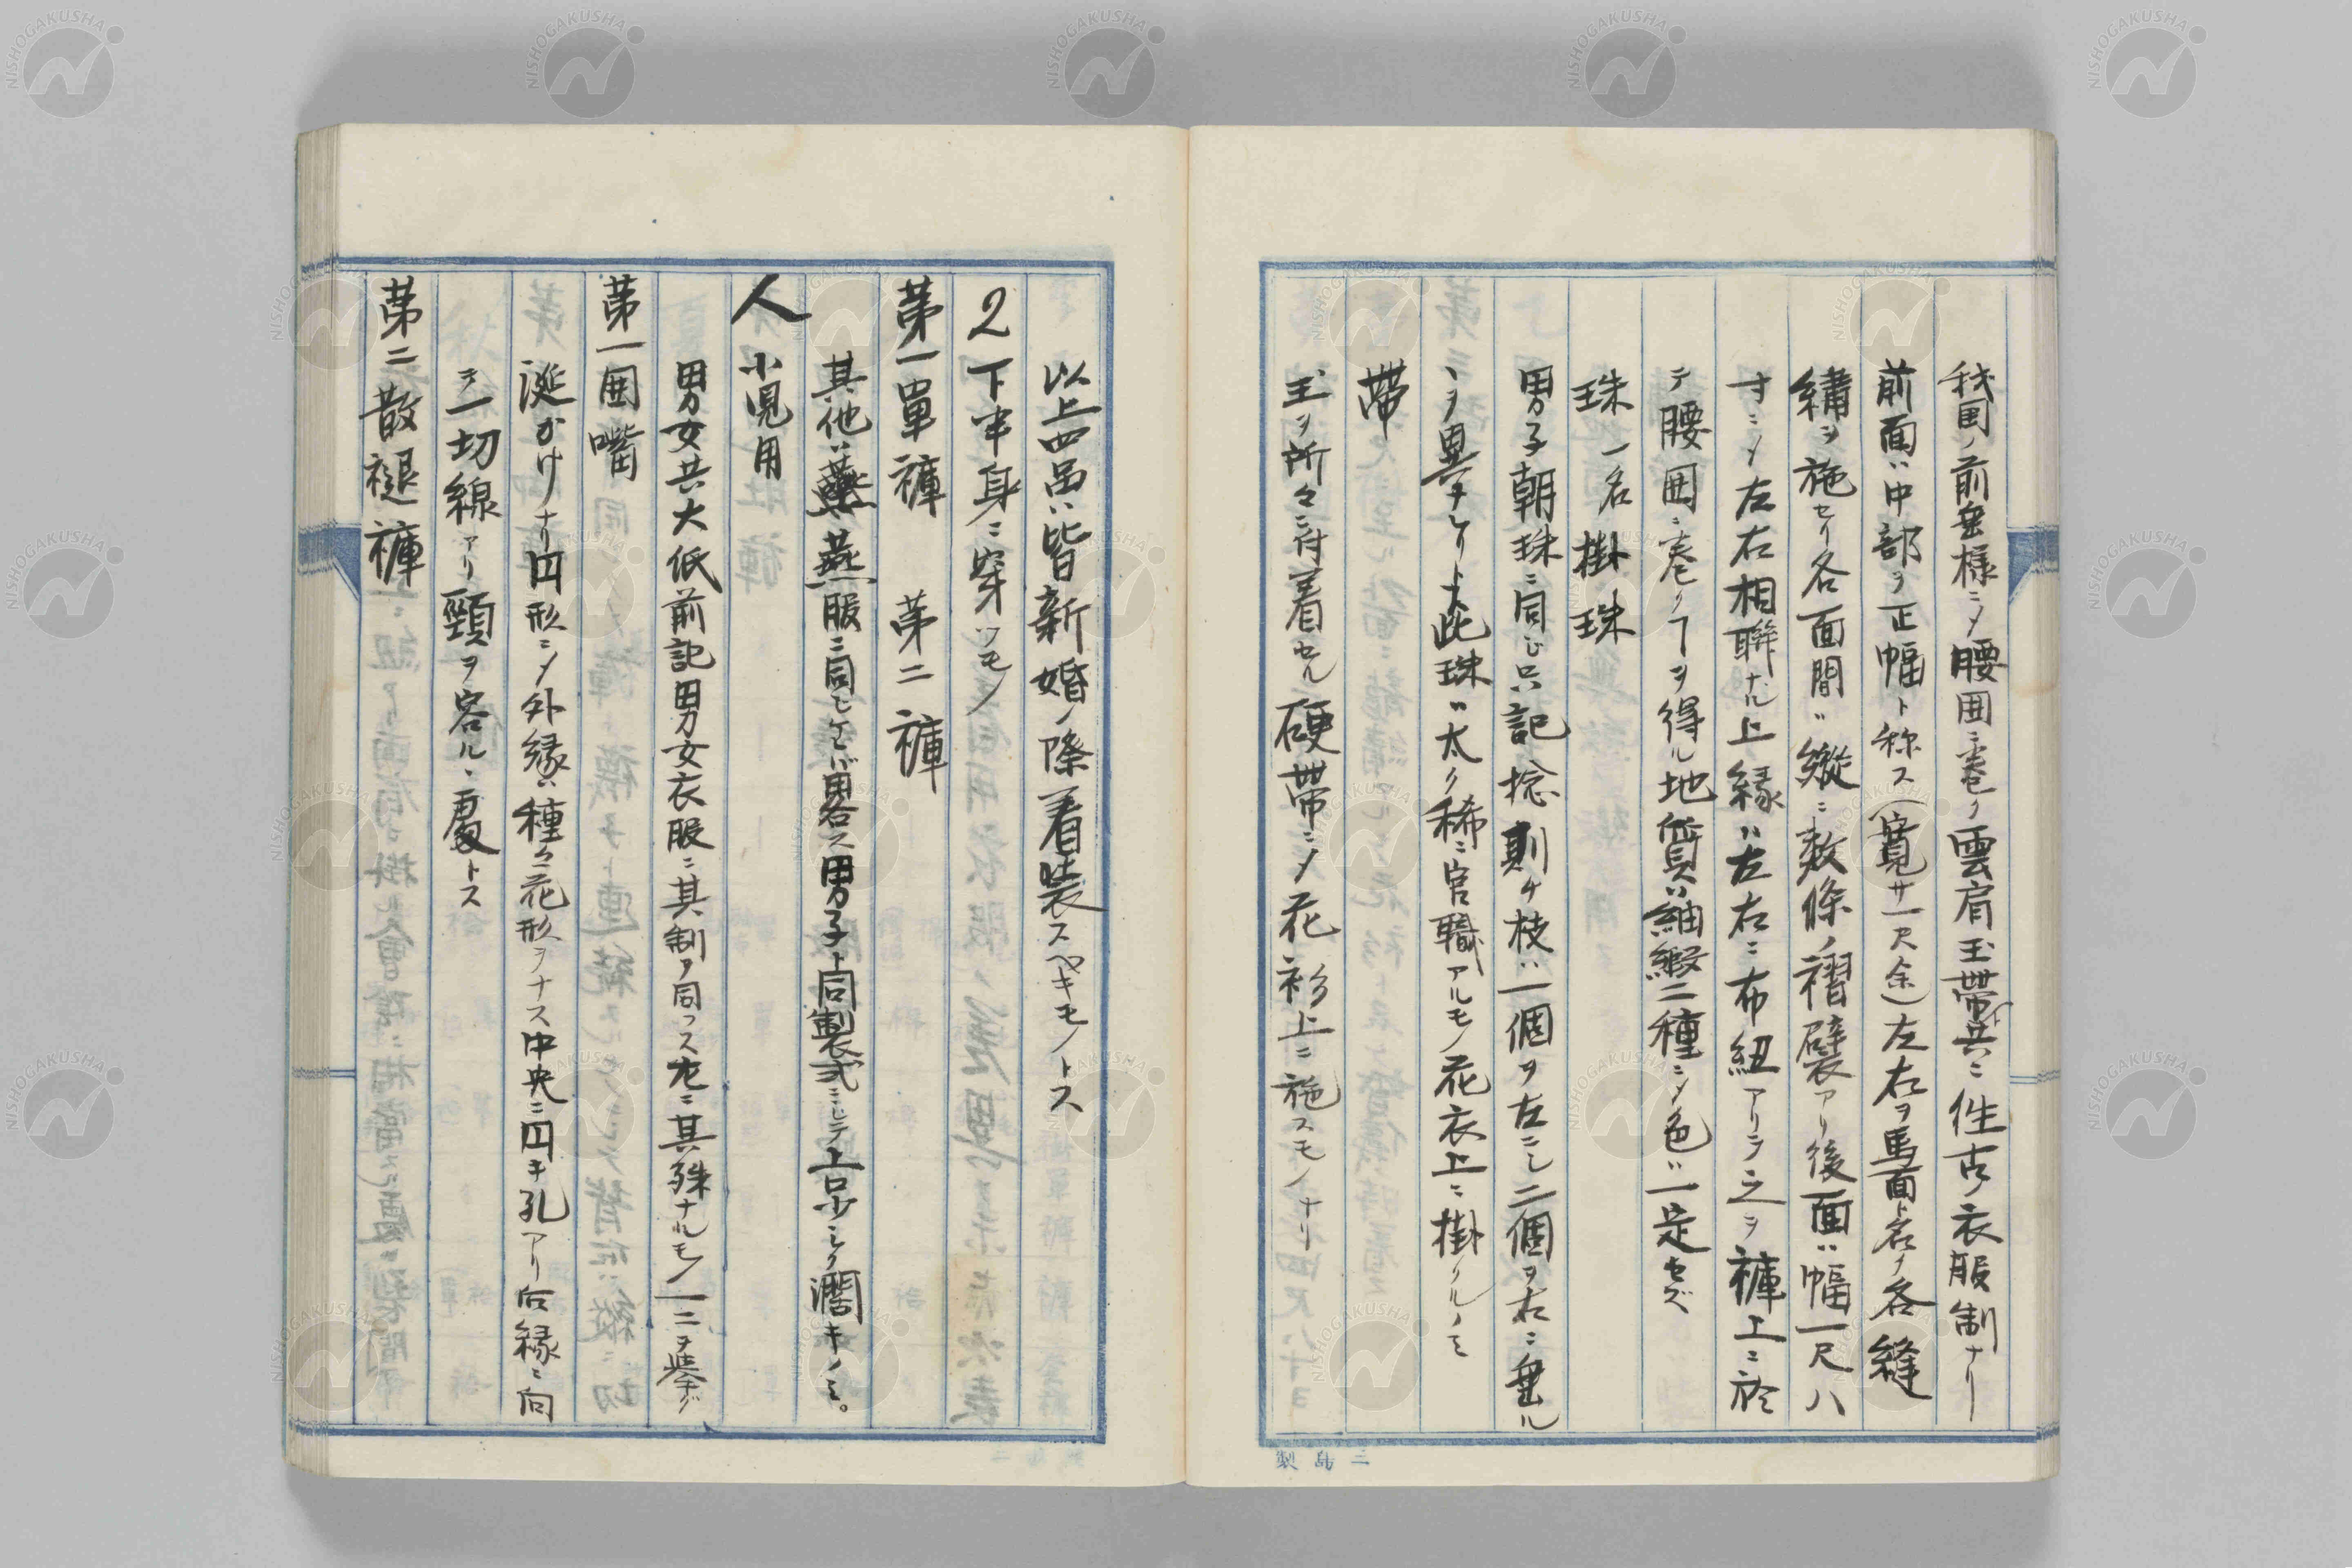 我国ノ前垂様ニシテ腰囲ニ巻ク雲肩玉帯共ニ徃古ノ衣服制ナリ
前面ハ中部ヲ正幅ト称ス(寛サ一尺余)左右ヲ馬面ト名ク各縫
繍ヲ施セリ各面間ハ縦ニ数條ノ褶襞アリ後面ハ幅一尺八
寸ニシテ左右相聯ナル上縁ハ左右ニ布紐アリテ之ヲ褲上ニ於
テ腰囲ニ巻クヿヲ得ル地質ハ紬緞二種ニシテ色ハ一定セズ
珠 一名掛珠
男子朝珠ニ同じ只記捻則ケ枝ハ一個ヲ左ニシ二個ヲ右ニ垂ル
ヽヲ異ナレリトス此珠ハ太ク稀ニ官職アルモノ花衣上ニ掛クルノミ
帯
玉ヲ所々ニ付着セル硬帯ニシテ花衫上ニ施スモノナリ
以上四品ハ皆新婚ノ際着装スベキモノトス
2 下半身ニ穿ツモノ
第一單褲 第二褲
其他ハ燕服ニ同じケレバ畧ス男子ト同製式ニシテ占口少シク濶キノミ。
人 小児用
男女共大低前記男女衣服ニ其制ヲ同フス左ニ其殊ナルモノ一二ヲ挙グ
第一囲嘴
涎かけノナリ円形ニシテ外縁ハ種々花形ヲナス中央ニ円キ孔アリ后縁ニ向
ヲ一切線アリ頸ヲ容ルヽ處トス
第二散褪褲
三島製
NISHOGAKUSHA